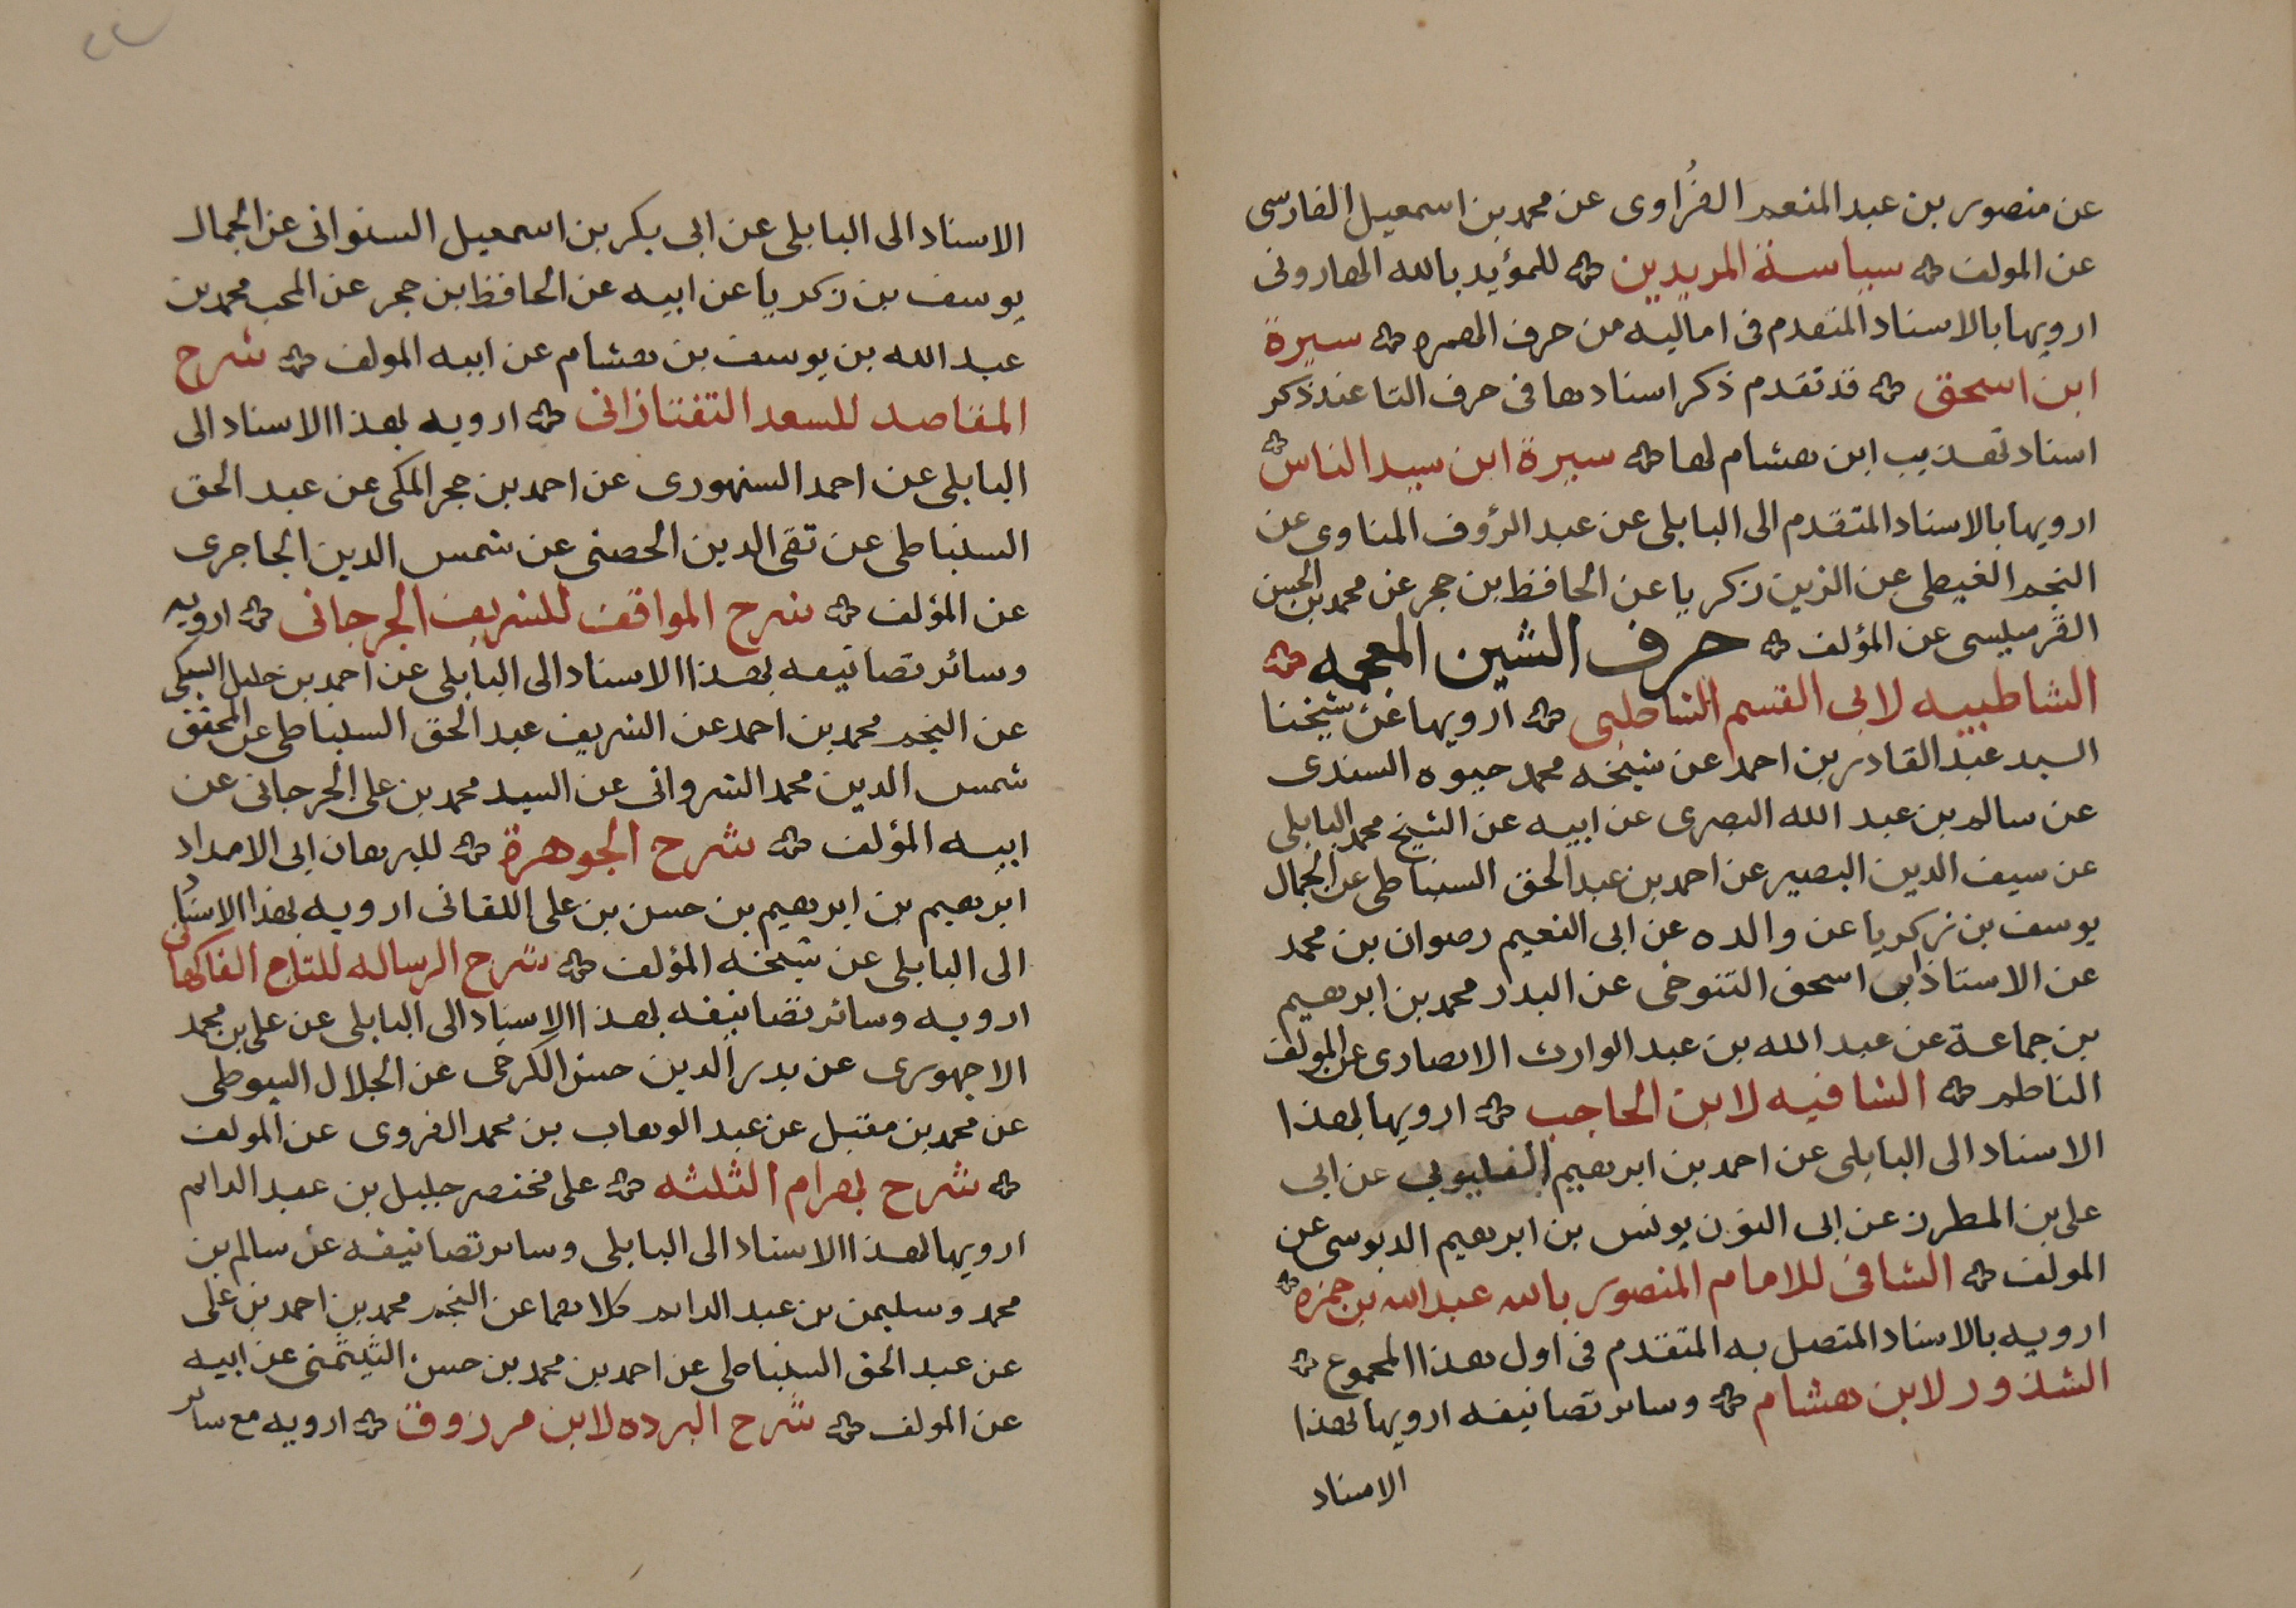 عن منصور بن عبد المنعم الفُراوى عن محمد بن اسمعيل الفارسى
عن المولف سياسة المريدين للمؤيد بالله الهارونى
ارويها بالاسناد المتقدم فى اماليه من حرف الهمزه سيرة
ابن اسحق قد تقدم ذكر اسنادها فى حرف التا عند ذكر
اسناد تهذيب ابن هشام لها سيرة ابن سيد الناس
ارويها بالاسناد المتقدم الى البابلى عن عبد الرؤف المناوى عن
النجم الغيطى عن الزين زكريا عن الحافظ بن حجر عن محمد بن الحسن
الفرسيسى عن المؤلف حرف الشين المعجمه
الشاطبيه لابى القسم الشاطبى ارويها عن شيخنا
السيد عبد القادر بن احمد عن شيخه محمد حيوه السندى
عن سالم بن عبد الله البصرى عن ابيه عن الشيخ محمد البابلى
عن سيف الدين البصير عن احمد بن عبد الحق السنباطى عن الجمال
يوسف بن زكريا عن والده عن ابى النعيم رضوان بن محمد
عن الاستاذ ابى اسحق التنوخى عن البدر محمد بن ابرهيم
بن جماعة عن عبد الله بن عبد الوارث الانصارى عن المولف
الناظم الشافيه لابن الحاجب ارويها بهذا
الاسناد الى البابلى عن احمد بن ابرهيم القليوبى عن ابى
على بن المطرز عن ابى النون يونس بن ابرهيم الدبوسى عن
المولف الشافى للامام المنصور بالله عبد الله بن حمزه
ارويه بالاسناد المتصل به المتقدم فى اول هذا المجموع
الشذور لابن هشام وسائر تصانيفه ارويها بهذا
الاسناد
الاسناد الى البابلى عن ابى بكر بن اسمعيل السنوانى عن الجمال
يوسف بن زكريا عن ابيه عن الحافظ بن حجر عن المحب محمد بن
عبد الله بن يوسف بن هشام عن ابيه المولف شرح
المقاصد للسعد التفتازانى ارويه بهذا الاسناد الى
البابلى عن احمد السنهورى عن احمد بن حجر المكى عن عبد الحق
السنباطى عن تقى الدين الحصنى عن شمس الدين الجاجرى
عن المؤلف شرح المواقف للشريف الجرجانى ارويه
وسائر تصانيفه بهذا الاسناد الى البابلى عن احمد بن خليل السبكى
عن النجم محمد بن احمد عن الشريف عبد الحق السنباطى عن المحقق
شمس الدين محمد الشروانى عن السيد محمد بن على الجرجانى عن
ابيه المؤلف شرح الجوهرة للبرهان ابى الامداد
ابرهيم بن ابرهيم بن حسن بن على اللقانى ارويه بهذا الاسناد
الى البابلى عن شيخه المؤلف شرح الرساله للتاج الفاكهانى
ارويه وسائر تصانيفه بهذا الاسناد الى البابلى عن على بن محمد
الاجهورى عن بدر الدين حسن الكرخى عن الجلال السيوطى
عن محمد بن مقبل عن عبد الوهاب بن محمد القروى عن المولف
شرح بهرام الثلثه على مختصر خليل بن عبد الدائم
ارويها بهذا الاسناد الى البابلى وسائر تصانيفه عن سالم بن
محمد وسليمن بن عبد الدائم كلاهما عن النجم محمد بن احمد بن على
عن عبد الحق السنباطى عن احمد بن محمد بن حسن الشمنى عن ابيه
عن المولف شرح البرده لابن مرزوق ارويه مع سائر